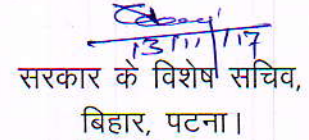 13/11/17
सरकार के विशेष सचिव,
बिहार, पटना।